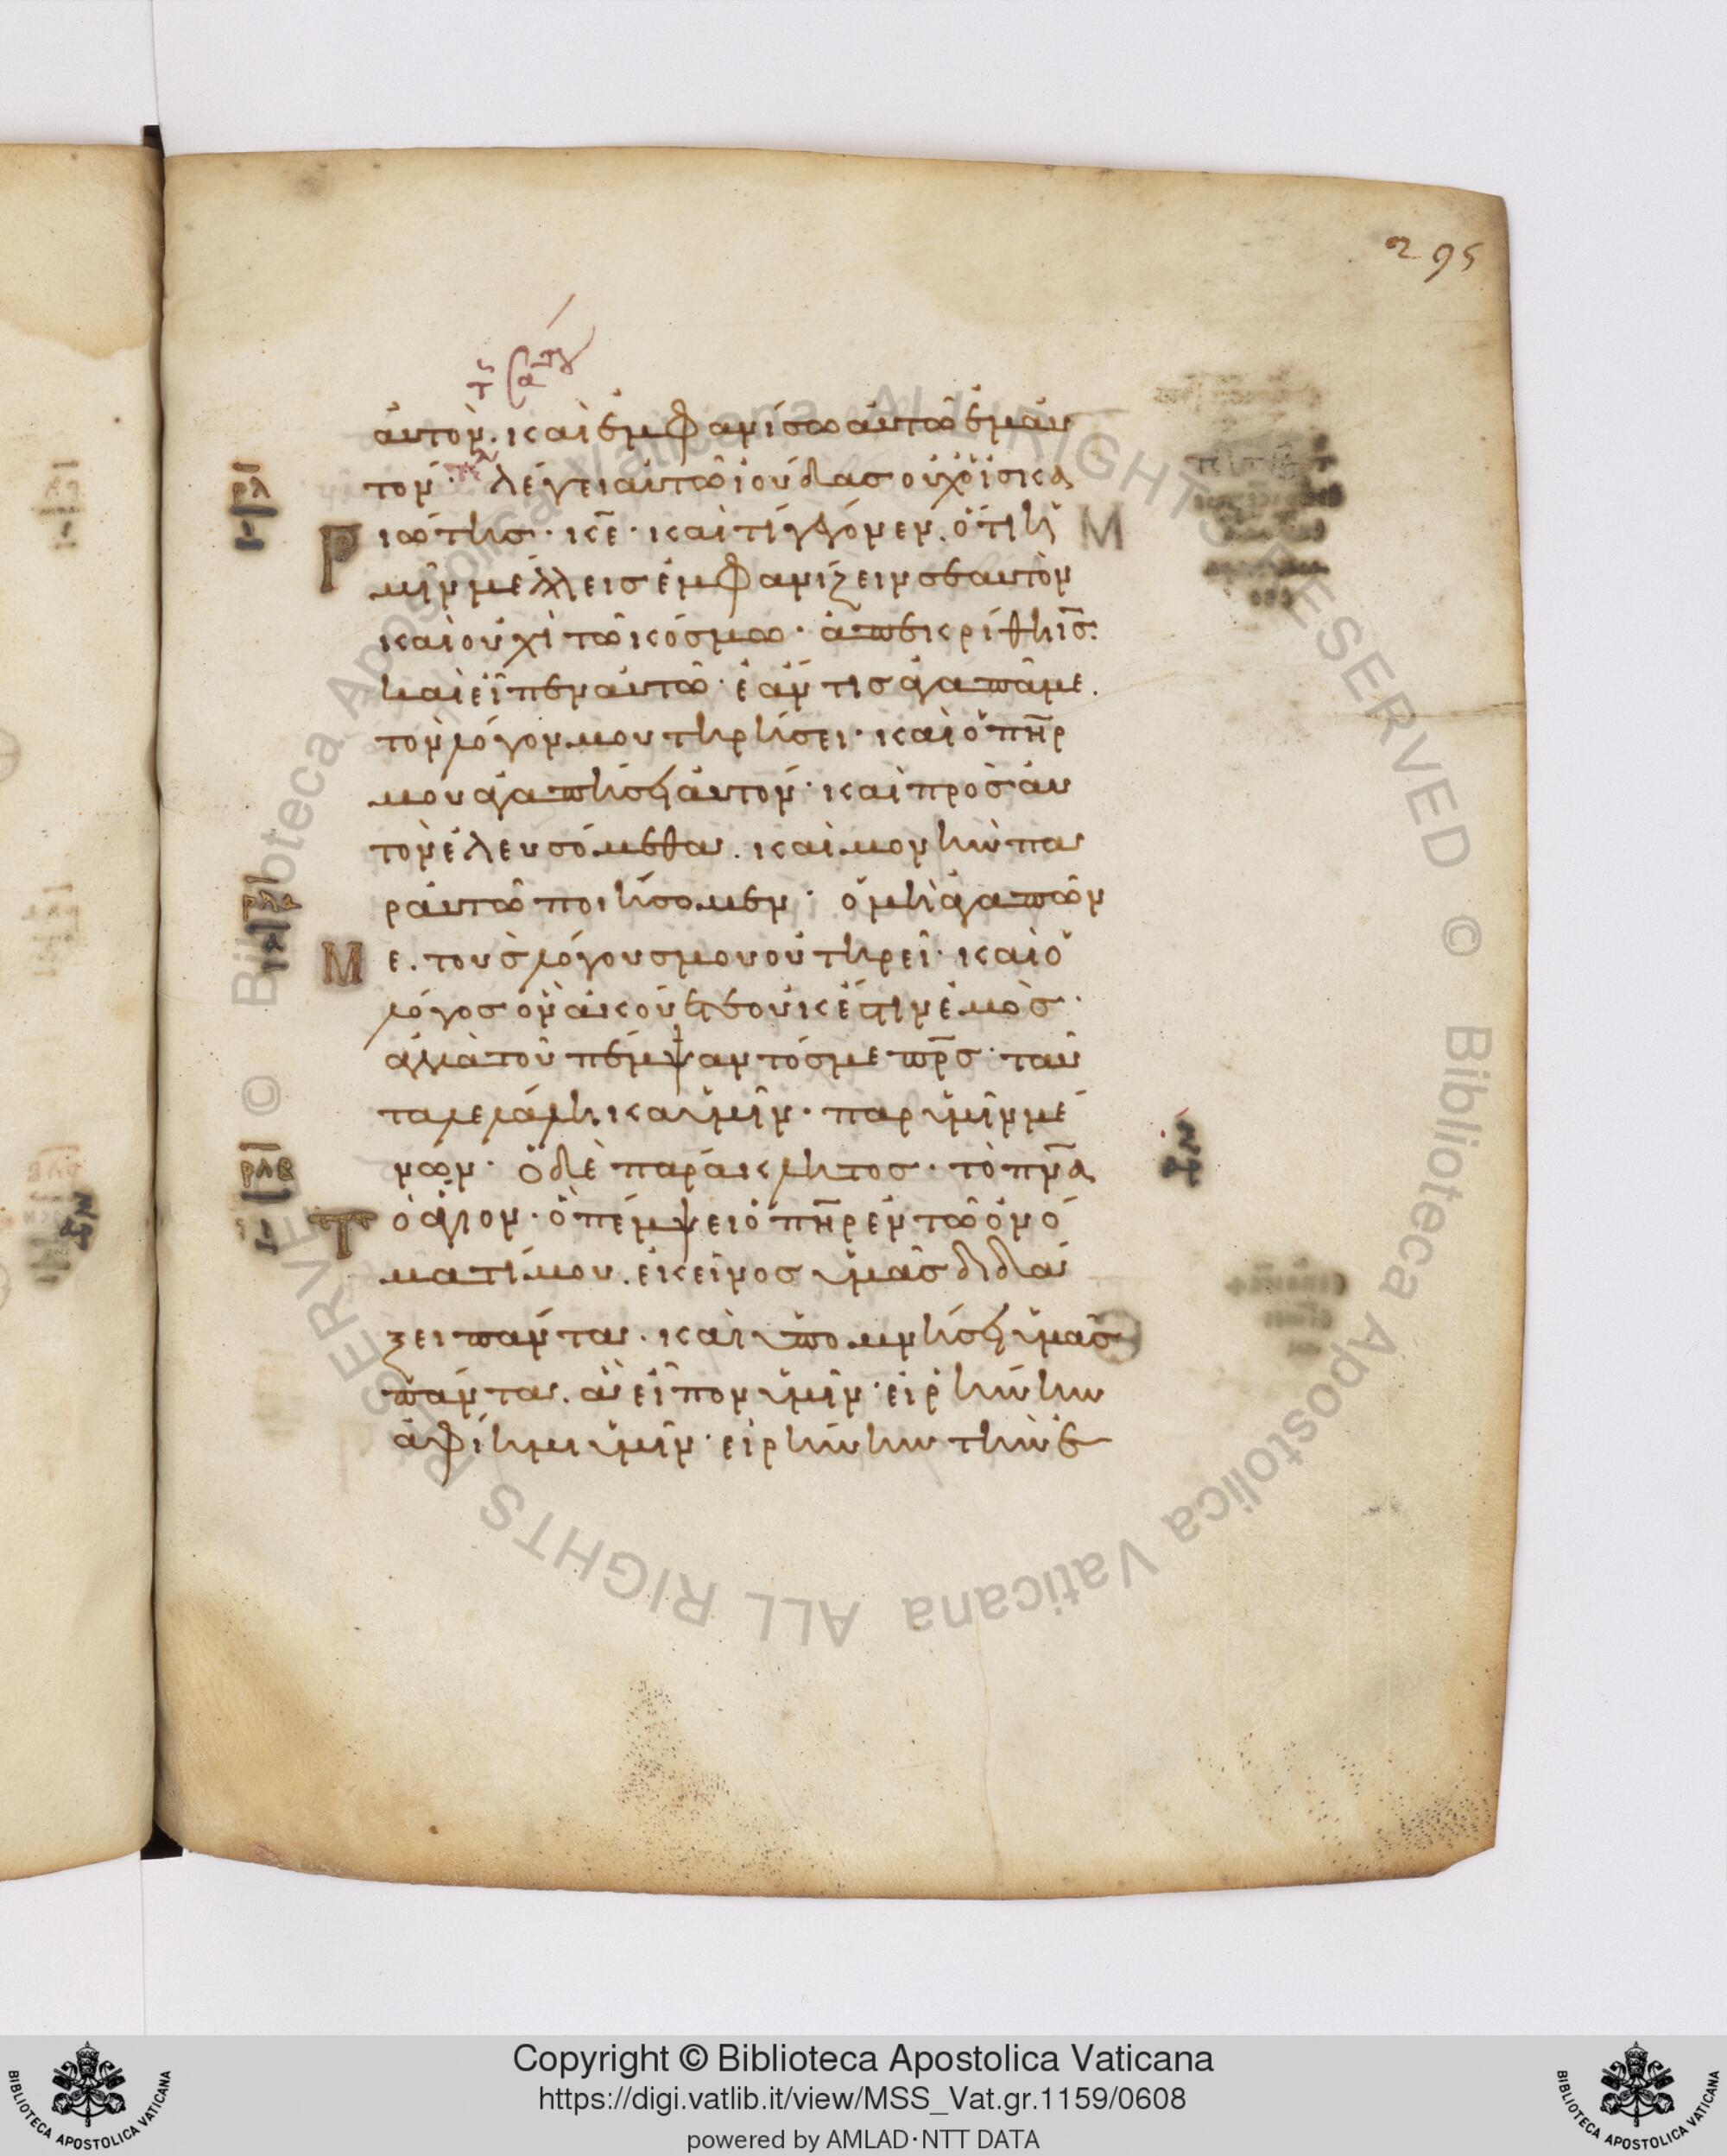 295
αὐτὸν. καὶ ἐμφανίσω αὐτῶ ἐμαυ
τόν· λέγει αὐτῶ ἰούδας οὐχ ὁ ἰσκα
ριώτης· κ̅ε̅· καὶ τί γέγονεν. ὅτι ἡ
μῖν μέλλεις ἐμφανίζειν σεαυτὸν
καὶ οὐχὶ τῶ κόσμω· ἀπεκρίθη ι̅ς̅.
καὶ εἶπεν αὐτῶ· ἐάν τις ἀγαπᾶ με.
τὸν λόγον μου τηρήσει· καὶ ὁ π̅η̅ρ̅
μου ἀγαπήσει αὐτόν· καὶ πρὸς αὐ
τὸν ἐλευσόμεθα. καὶ μονὴν πα
ρ αὐτῶ ποιήσομεν· ὁ μὴ ἀγαπῶν
με. τοὺς λόγους μου οὐ τηρεῖ· καὶ ὁ
λόγος ὃν ἀκούετε οὐκ ἔστιν ἐμὸς·
ἀλλὰ τοῦ πέμψαντός με π̅ρ̅ς̅· ταῦ
τα λελάληκα ὑμῖν· παρ ὑμῖν μέ
νων· ὁ δὲ παράκλητος· τὸ π̅ν̅α̅
τὸ ἅγιον· ὃ πέμψει ὁ π̅η̅ρ̅ ἐν τῶ ὀνό
ματί μου. ἐκεῖνος ὑμᾶς διδά
ξει πάντα. καὶ ὑπομνήσει ὑμᾶς
πάντα. ἃ εἶπον ὑμῖν· εἰρήνην
ἀφίημι ὑμῖν· εἰρήνην τὴν ἐ
ρλ
ρλα
ρλβ
Copyright © Biblioteca Apostolica Vaticana
https://digi.vatlib.it/view/MSS_Vat.gr.1159/0608
powered by AMLAD·NTT DATA
BIBLIOTECA APOSTOLICA VATICANA
BIBLIOTECA APOSTOLICA VATICANA